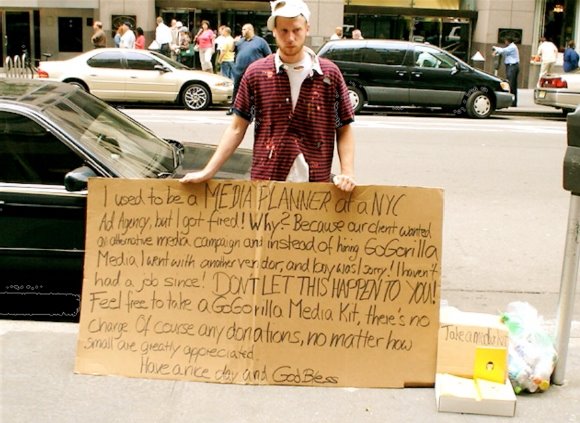 I used to be a MEDIA PLANNER at a NYC
Ad Agency, but I got fired! Why? Because our client wanted
an alternative media campaign and instead of hiring GoGorilla
Media I went with another vendor, and boy was I sorry! I haven't
had a job since! DON'T LET THIS HAPPEN TO YOU!
Feel free to take a GoGorilla Media Kit, there's no
charge. Of course any donations, no matter how
small are greatly appreciated.
Have a nice day and God Bless
Take a media kit